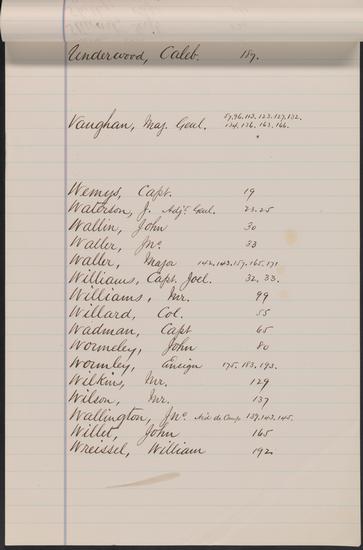 Underwood, Caleb. 159.
Vaughan, Maj. Genl. 59,96.113.123.127.132.
134.136.163.166.
Wemys, Capt. 19
Waterson, J. Adjt. Genl. 23.25
Wallin, John 30
Waller, Jno 33
Waller, Major 142.143.159.165.171
Williams, Capt. Joel. 32.33.
Williams, Mr. 49
Willard, Col. 55
Wadman, Capt 65
Wormeley, John 80
Wormley, Ensign 175.183.193.
Wilkins, Mr. 129
Wilson, Mr. 137
Wallington, Jno Aid de Camp 139.143.145.
Willet, John 165
Wreissel, William 192